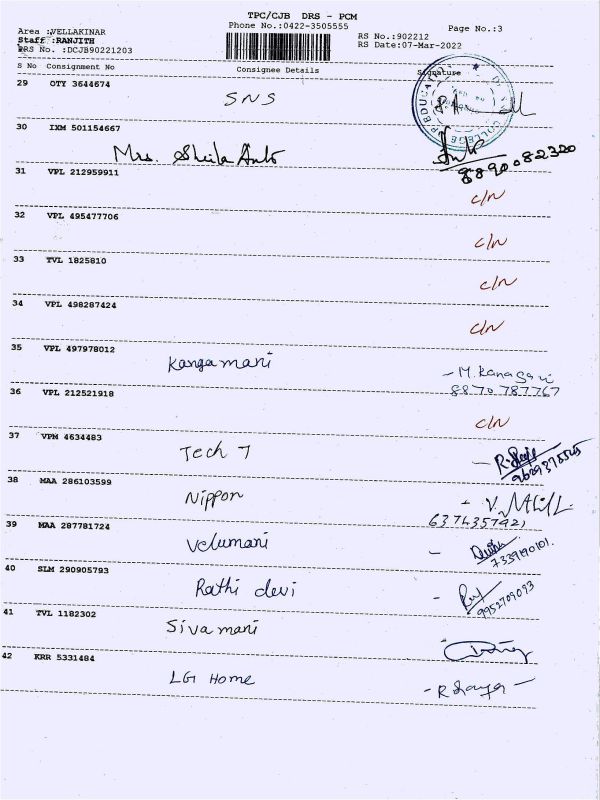 TPC/CJB DRS - PCM
Area :VELLAKINAR
Phone No.:0422-3505555
Page No.:3
Staff :RANJITH
RS No.:902212
DRS No. :DCJB90221203
RS Date:07-Mar-2022
S No Consignment No Consignee Details Signature
29 OTY 3644674
SNS
30 IXM 501154667
Mrs. Sheila Anto
Anto
8890082320
31 VPL 212959911
C/N
32 VPL 495477706
C/N
33 TVL 1825810
C/N
34 VPL 498287424
C/N
35 VPL 497978012
Kangamani
- M. Kanagavi
8870787767
36 VPL 212521918
C/N
37 VPM 4634483
Tech 7
38 MAA 286103599
Nippon
6374357921
39 MAA 287781724
Velumani
7339190101.
40 SLM 290905793
Rathi devi
9952709093
41 TVL 1182302
Sivamani
42 KRR 5331484
LG Home